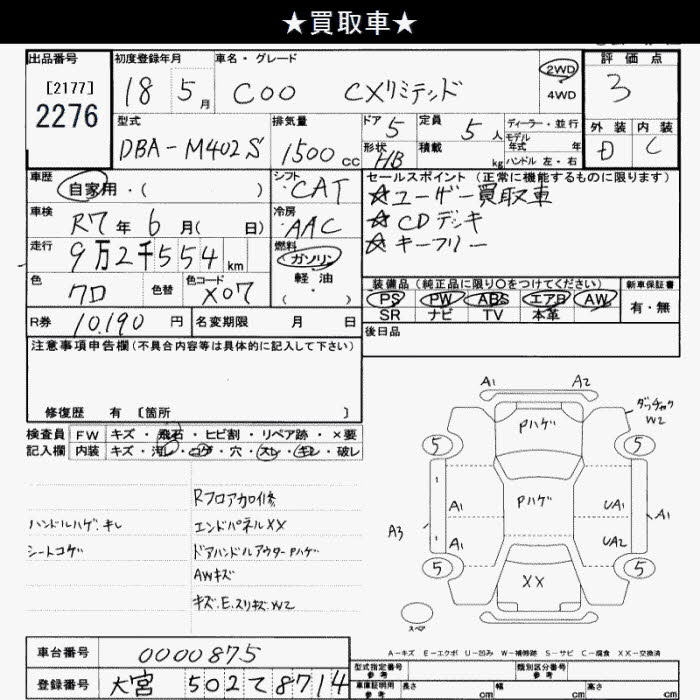 ★買取車★
出品番号
[2177]
2276
初度登録年月
18 5月
車名・グレード
COO CXリミテッド
2WD
4WD
評価点
3
外装 内装
D C
型式
DBA-M402S
排気量
1500cc
ドア 5
定員 5人
形状 HB
積載 kg
ディーラー・並行
モデル
年式 年
ハンドル 左・右
車歴
自家用・( )
シフト
CAT
車検
R7年 6月( 日)
冷房
AAC
走行
9万2千554km
燃料
ガソリン
軽油
( ・ )
色
クロ
色替
色コード
X07
R券 10,190円
名変期限 月 日
セールスポイント(正常に機能するものに限ります)
☆ユーザー買取車
☆CDデッキ
☆キーフリー
装備品(純正品に限り〇をつけてください)
新車保証書
PS PW ABS エアB AW
SR ナビ TV 本革
有・無
後日品
注意事項申告欄(不具合内容等は具体的に記入して下さい)
修復歴 有 [箇所 ]
検査員
記入欄
FW キズ・飛石・ヒビ割・リペア跡・×要
内装 キズ・汚レ・コゲ・穴・スレ・キレ・破レ
ハンドルハゲ.キレ
シートコゲ
Rフロア加修
エンドパネルXX
ドアハンドルアウターPハゲ
AWキズ
キズ.E.スリキズW2
A1 A2
Pハゲ
W2
5 5
Pハゲ
A1 UA1
A3 A1
A1 UA2
5 5
XX
スペア
A-キズ E-エクボ U-凹み W-補修跡 S-サビ C-腐食 XX-交換済
車台番号 0000875
登録番号 大宮 502 て 8714
型式指定番号
参考
類別区分番号
参考
車庫証明用
参考
長さ cm
幅 cm
高さ cm